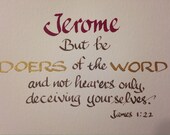 Jerome
But be
DOERS of the WORD
and not hearers only,
deceiving yourselves.
James 1:22